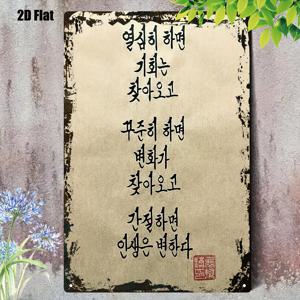 2D Flat
열심히 하면
기회는
찾아오고
꾸준히 하면
변화가
찾아오고
간절하면
인생은 변한다